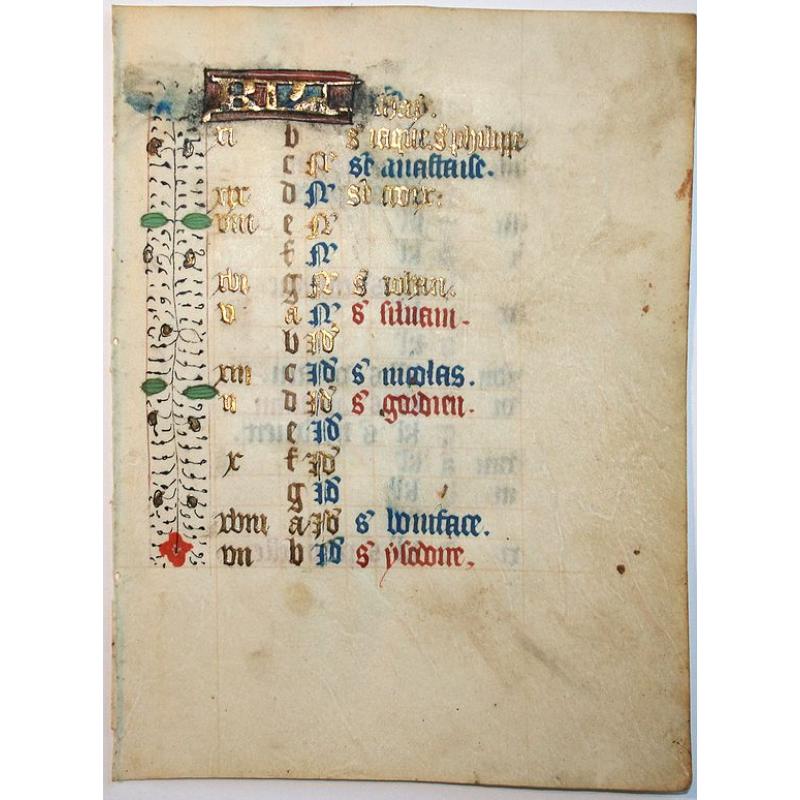 KL May.
xi b s' iaque. s' phelippe
c N' se anastaise.
xix d N' se croix.
viii e N'
f N'
xvi g N' s' iehan.
v a N' s' siluain.
b Id
xiii c Id s' nicolas.
ii d Id s' gordien.
e Id
x f Id
g Id
xviii a Id s' boniface.
vii b Id s' ysedoire.